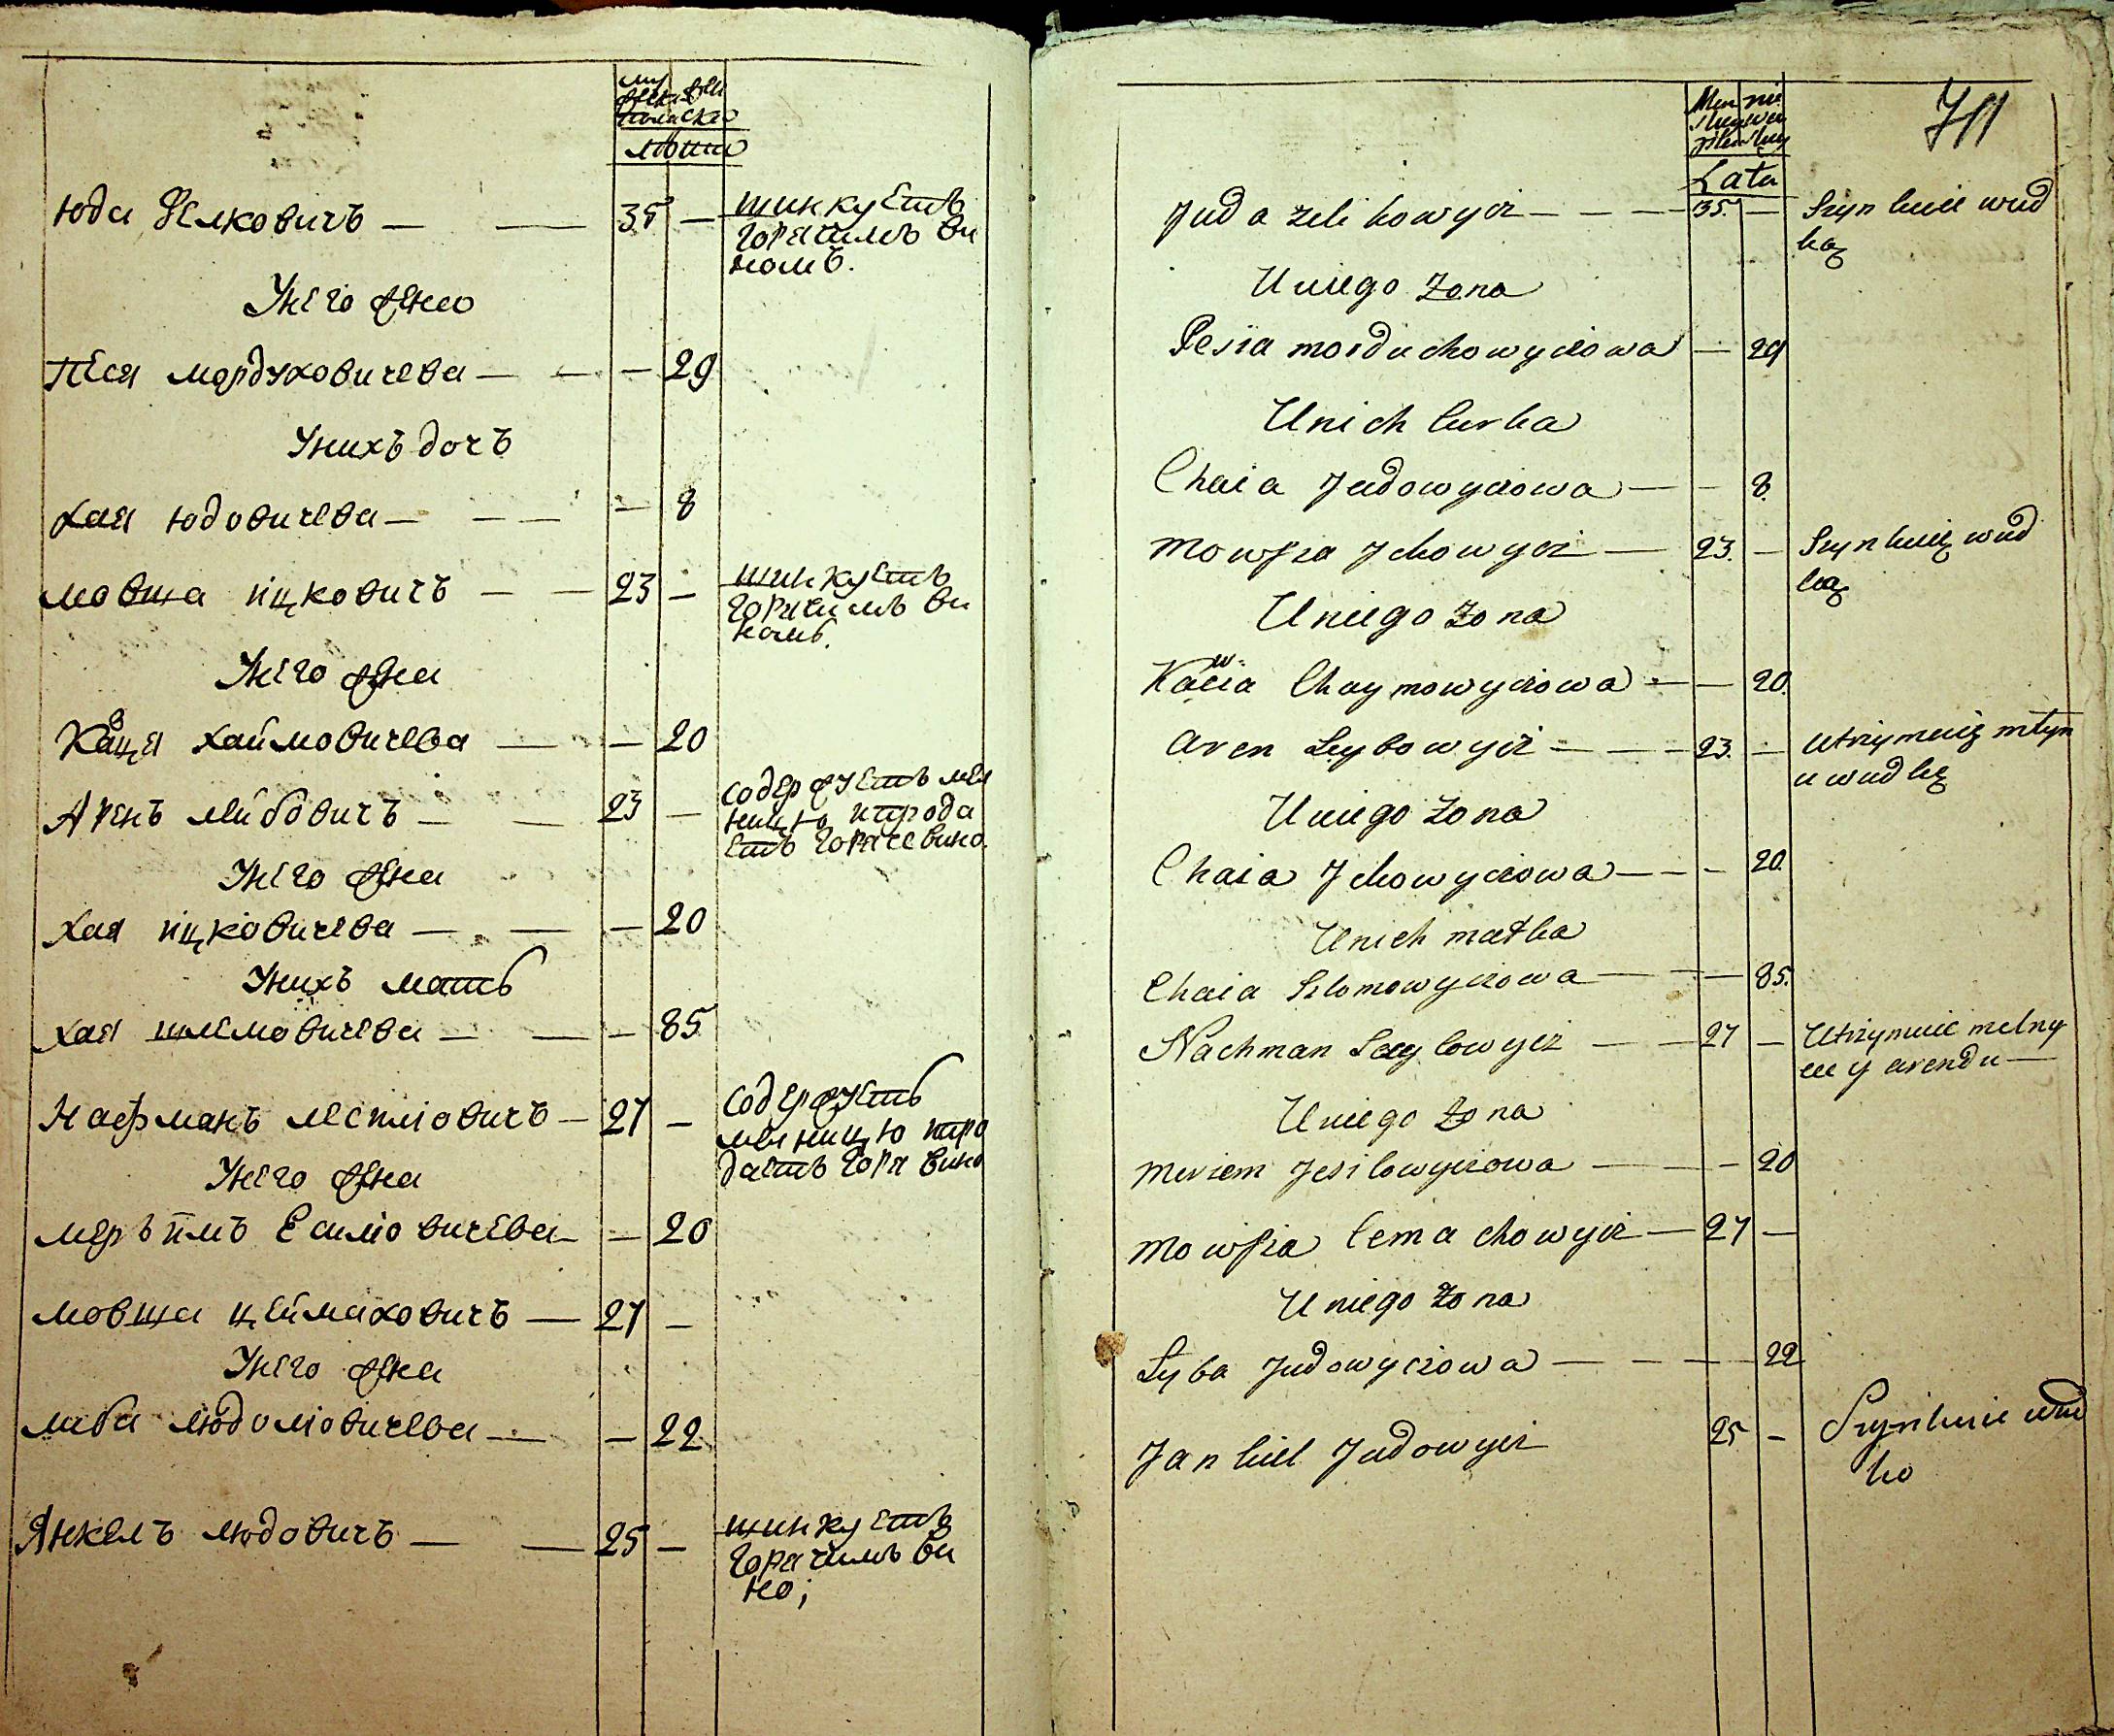 му
жеска жен
пола ска
лѣта
Юда Зелковичъ — — 35 — шинкуетъ
горячимъ ви
номъ.
У него жена
Песя Мордуховичева — — — 29
У нихъ дочъ
Хая Юдовичева — — — — 8
Мовша Ицковичъ — — 23 — шинкуетъ
горячимъ ви
номъ.
У него жна
Кавця Хаймовичева — — 20
Аренъ Лейбовичъ — — 23 — содержуетъ мел
ницю и прода
етъ горяче вино.
У него жена
Хая Ицковичева — — — 20
У нихъ мать
Хая Шлемовичева — — — 85
Нафманъ — 27 — содержуетъ
мелницю и про
даетъ горя вино
У него жена
Меръимъ — 20
Мовша Цеймаховичъ — 27 —
У него жена
Либа — — 22
Янкелъ Юдовичъ — — 25 — шинкуетъ
горячимъ ви
но;
711
Lata
Juda Zelikowycz — — — 35. — Szynkuie wud
ką
U niego Żona
Pesia Morduchowyczowa — 29
U nich Curka
Chaia Judowyczowa — — 8.
Mowsza Jckowycz — 23. — Szynkuię wud
ką
U niego Żona
Kawcia Chaymowyczowa — — 20.
Aren Leybowycz — — — 23. — Utrzymuię młyn
u wudkę
U niego Żona
Chaia Jckowyczowa — — — 20.
U nich matka
Chaia Szlomowyczowa — — — 85.
Nachman — — 27 — Utrzymuie melny
cu y arendu —
U niego Żona
Meriem — — — 20
Mowsza Cemachowycz — 27 —
U niego Żona
Lyba Judowyczowa — — — 22
Jankiel Judowycz 25 — Szynkuie wud
ko